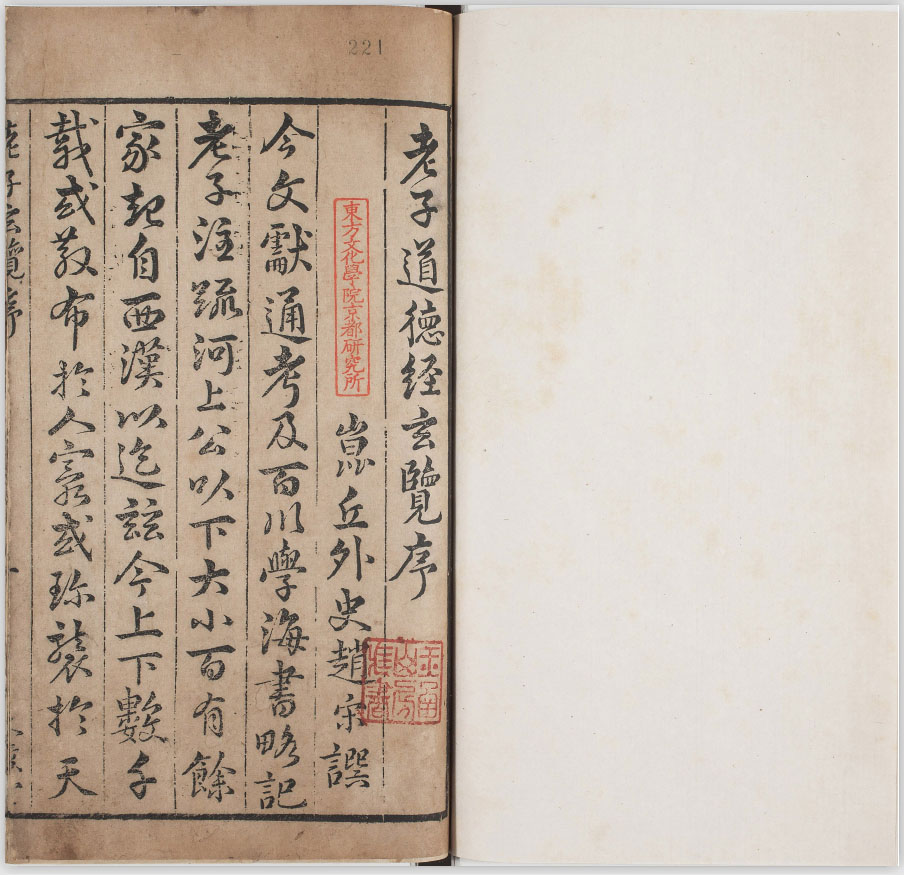 221
老子道德経玄覽序
東方文化學院京都研究所
丘外史趙宋譔
今文獻通考及百川學海書略記
老子注疏河上公以下大小百有餘
家起自西漢以迄茲今上下數千
載或散布於人寰或珍襲於天
老子玄覽序